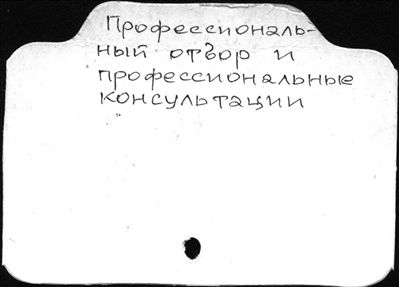 Профессиональ-
ный отбор и
профессиональные
консультации